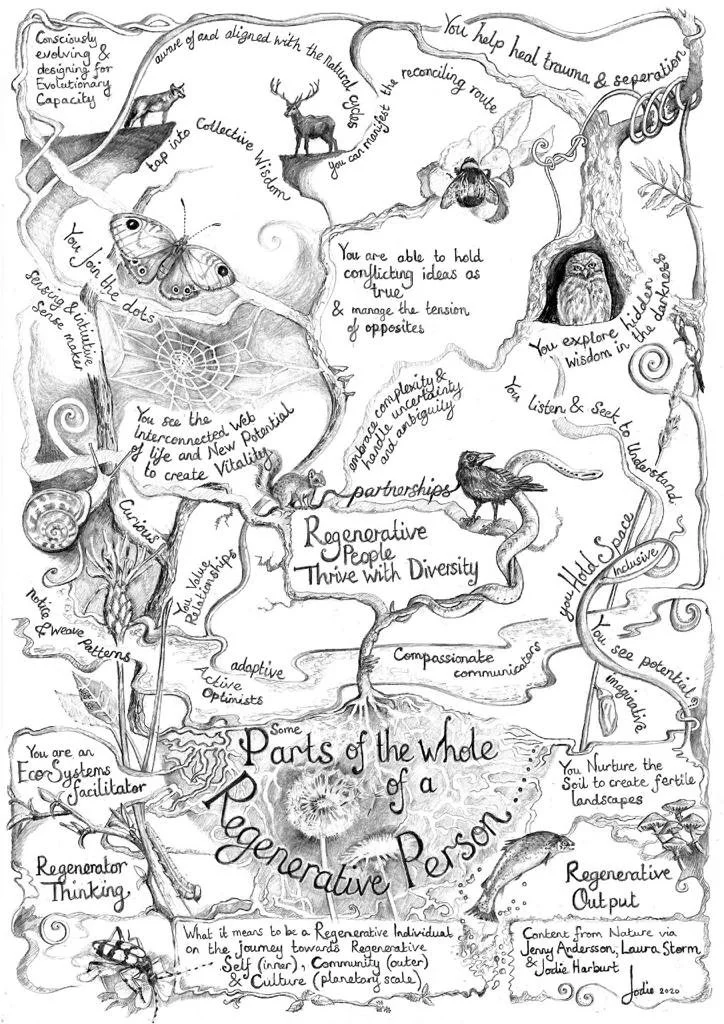 Consciously
evolving &
designing for
Evolutionary
Capacity
aware of and aligned with the natural cycles
You help heal trauma & seperation
tap into Collective Wisdom
you can manifest the reconciling route
You join the dots
sensing & intuitive
Sense maker
You are able to hold
conflicting ideas as
true
& manage the tension
of opposites
You explore hidden
wisdom in the darkness
You see the
interconnected Web
of life and New Potential
to create Vitality
embrace complexity &
handle uncertainty
and ambiguity
You Listen & Seek to Understand
partnerships
Regenerative
People
Thrive with Diversity
Curious
You Value
Relationships
you Hold Space
Inclusive
Notice
& Weave Patterns
adaptive
Active
Optimists
Compassionate
communicators
You see potential
imaginative
Some
Parts of the whole
of a
Regenerative Person...
You are an
EcoSystems
facilitator
You Nurture the
Soil to create fertile
landscapes
Regenerator
Thinking
Regenerative
Output
What it means to be a Regenerative Individual
on the journey towards Regenerative
Self (inner), Community (outer)
& Culture (planetary scale)
Content from Nature via
Jenny Andersson, Laura Storm
& Jodie Harburt
Jodie 2020